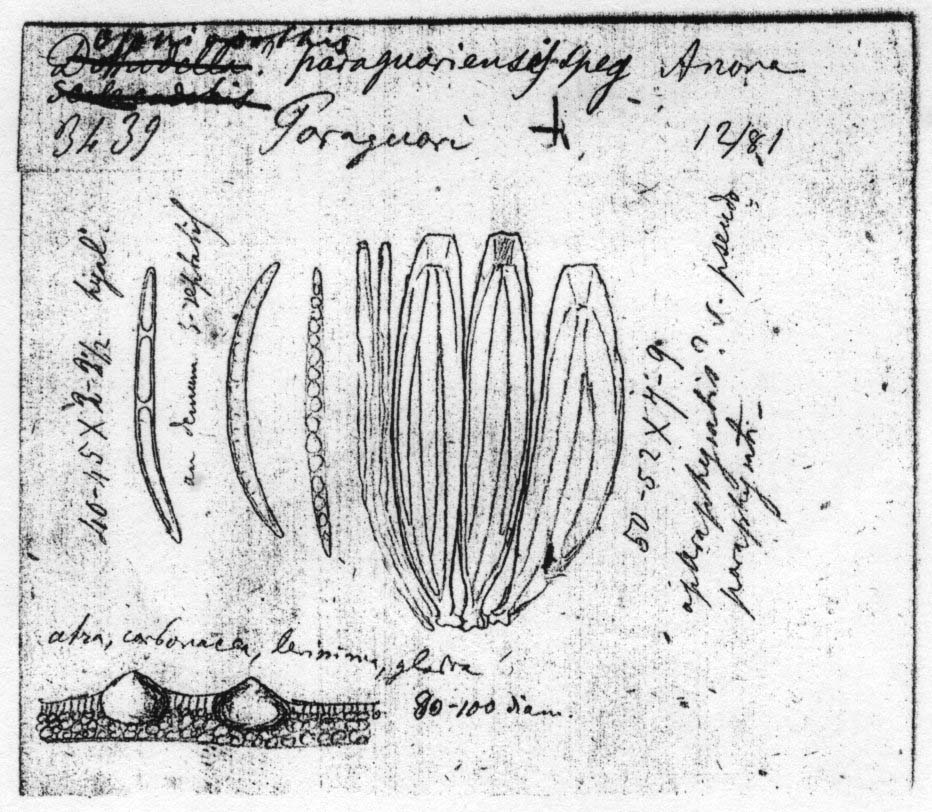 paraguariensis Speg Anona
3439 Paraguari 12/81
40-45 X 2-2½ hyal.
an demum 3-septatis
50-52 X 7-9
aparaphysatis? v. pseudo
paraphysatis
atra, carbonacea, levissima, glabra
80-100 diam.